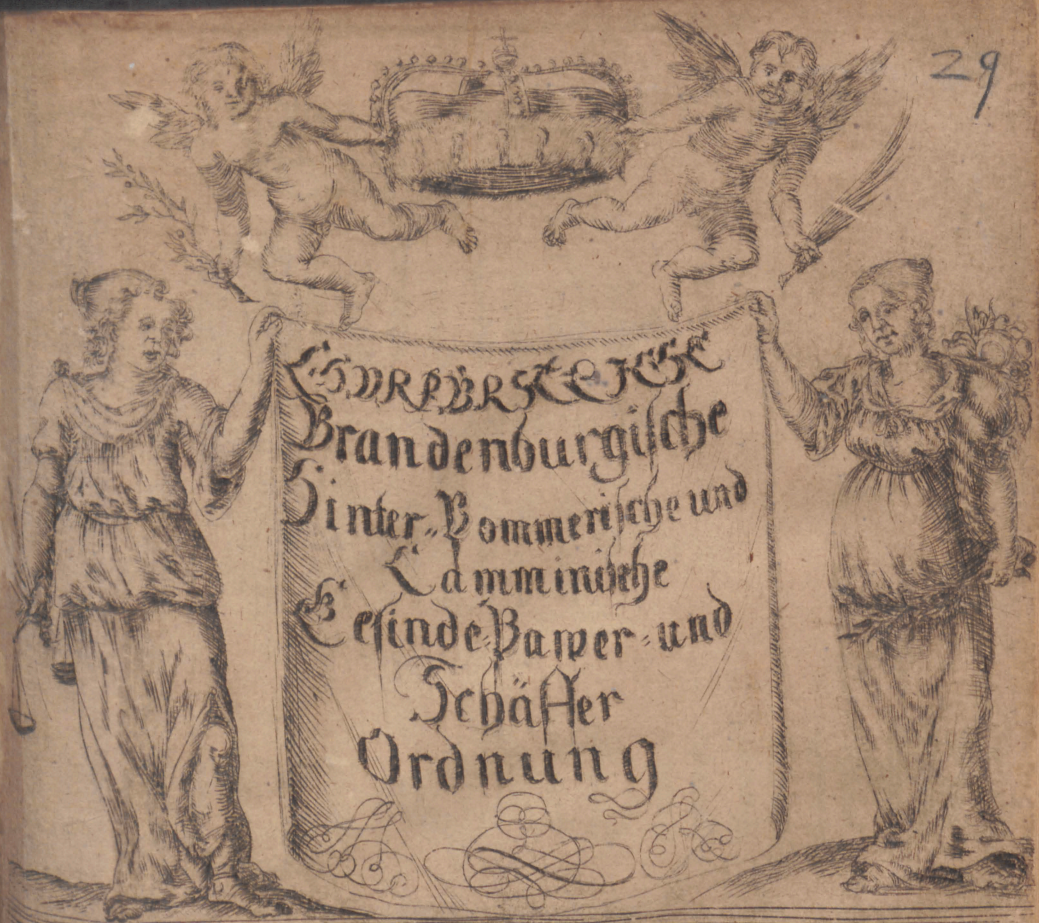 29
CHURFÜRSTLICHE
Brandenburgische
Hinter-Pommerische und
Camminische
Gesinde-Bawer-und
Schäffer
Ordnung